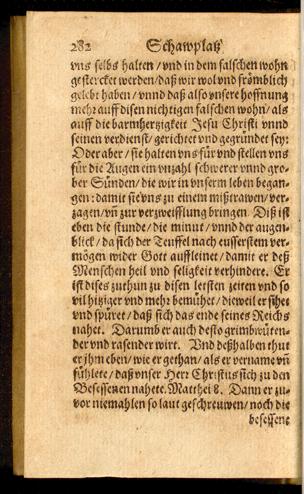 282 Schawplatz
vns selbs halten / vnd in dem falschen wohn
gestercket werden / daß wir wol vnd frömblich
gelebt haben / vnnd daß also vnsere hoffnung
mehr auff disen nichtigen falschen wohn / als
auff die barmhertzigkeit Jesu Christi vnnd
seinen verdienst / gerichtet vnd gegründet sey:
Oder aber / sie halten vns für vnd stellen vns
für die Augen ein vnzahl schwerer vnnd gro-
ber Sünden / die wir in vnserm leben began-
gen: damit sie vns zu einem mißtrawen / ver-
zagen / vñ zur verzweifflung bringen. Diß ist
eben die stunde / die minut / vnnd der augen-
blick / da sich der Teuffel nach eusserstem ver-
mögen wider Gott auffleinet / damit er deß
Menschen heil vnd seligkeit verhindere. Er
ist dises zuthun zu disen letsten zeiten vnd so
vil hitziger vnd mehr bemühet / dieweil er sihet
vnd spüret / daß sich das ende seines Reichs
nahet. Darumb er auch desto grimbwüten-
der vnd rasender wirt. Vnd deßhalben thut
er jhm eben / wie er gethan / als er vername vñ
fühlete / daß vnser Herr Christus sich zu den
Besessenen nahete. Matthei 8. Dann er zu-
vor niemahlen so laut geschreuwen / noch die
besessene